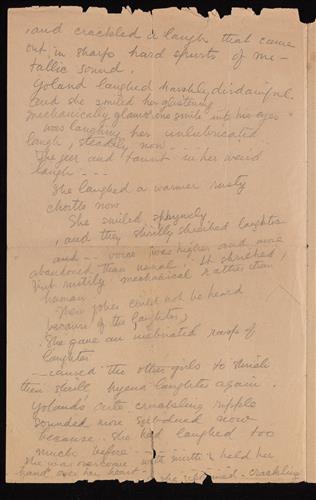 , and crackled a laugh that came
out in sharp hard spurts of me-
tallic sound.
Yoland laughed harshly, disdainful.
And she smiled her glistening
mechanically glamorous smile into his eyes
was laughing her unlubricated
laugh, steadily now - - -
The jeer and taunt in her weird
laugh - - -
She laughed a warmer rusty
chortle now
She smiled sphyncly
, and they shrilly shrieked laughter
and - - voice was higher and more
abandoned than usual. It shrieked,
but rustily, mechanical rather than
human.
New jokes could not be heard
because of the laughter,
She gave an inebriated rasp of
laughter
- caused the other girls to shriek
their shrill hyena laughter again.
Yoland's cute crumbling ripple
sounded more subdued now
because she had laughed too
much before - - - -
She was overcome with mirth & held her
hand over her heart - - - she - crackling